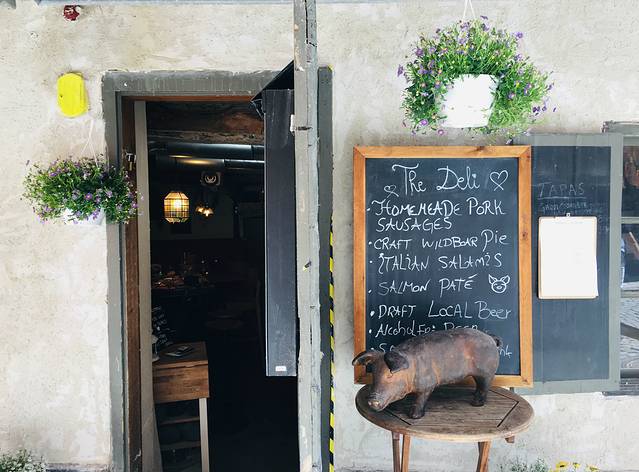 The Deli
HOMEMEADE PORK
SAUSAGES
• CRAFT WILDBOAR PIE
• ITALIAN SALAMIS
• SALMON PATÉ
• DRAFT LOCAL Beer
• Alcohol
TAPAS